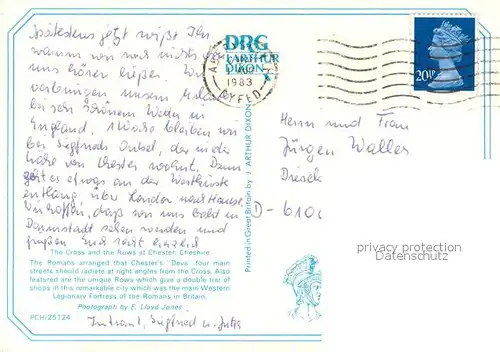 Spätestens jetzt wißt Ihr
warum von uns nichts
uns hören ließen. Wir
verbringen unsern Urlaub
bei sehr schönem Wetter in
England. 1 Woche bleiben wir
bei Siegfrieds Onkel, der in der
Nähe von Chester wohnt. Dann
geht es etwas an der Westküste
entlang, über London nach Hause.
Wir hoffen, daß wir uns bald in
Darmstadt sehen werden und
grüßen Euch recht herzlich
DRG
J. ARTHUR
DIXON
1983
DYFED
20P
Herrn und Frau
Jürgen Waller
D-610
privacy protection
Datenschutz
Printed in Great Britain by J ARTHUR DIXON
The Cross and the Rows at Chester, Cheshire
The Romans arranged that Chester's "Deva" four main
streets should radiate at right angles from the Cross. Also
featured are the unique Rows which give a double tier of
shops in this remarkable city which was the main Western
Legionary Fortress of the Romans in Britain.
Photograph by E. Lloyd Jones
PCH/25124
Siegfried u. Jutta